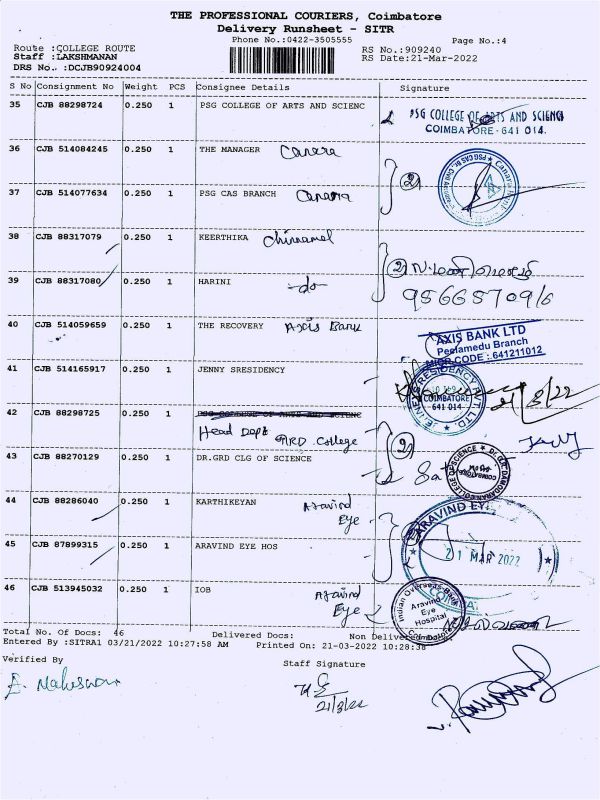 THE PROFESSIONAL COURIERS, Coimbatore
Delivery Runsheet - SITR
Phone No.:0422-3505555
Page No.:4
Route :COLLEGE ROUTE
RS No.:909240
Staff :LAKSHMANAN
RS Date:21-Mar-2022
DRS No.. :DCJB90924004
S No Consignment No Weight PCS Consignee Details Signature
35 CJB 88298724 0.250 1 PSG COLLEGE OF ARTS AND SCIENC
PSG COLLEGE OF ARTS AND SCIENCE
COIMBATORE - 641 014.
36 CJB 514084245 0.250 1 THE MANAGER Canara
37 CJB 514077634 0.250 1 PSG CAS BRANCH Canara
2
38 CJB 88317079 0.250 1 KEERTHIKA
39 CJB 88317080 0.250 1 HARINI -do-
2
40 CJB 514059659 0.250 1 THE RECOVERY Axis Bank
AXIS BANK LTD
Peelamedu Branch
MICR CODE : 641211012
41 CJB 514165917 0.250 1 JENNY SRESIDENCY
COIMBATORE
641 014
42 CJB 88298725 0.250 1 PSG COLLEGE OF ARTS AND SCIENC
Head Dept GRD College
2
43 CJB 88270129 0.250 1 DR.GRD CLG OF SCIENCE
44 CJB 88286040 0.250 1 KARTHIKEYAN Aravind
Eye
ARAVIND EYE
45 CJB 87899315 0.250 1 ARAVIND EYE HOS
21 MAR 2022
46 CJB 513945032 0.250 1 IOB Aravind
Eye
Indian Overseas Bank
Aravind
Eye
Hospital
Coimbatore
Total No. Of Docs: 46 Delivered Docs: Non Delivered
Entered By :SITRA1 03/21/2022 10:27:58 AM Printed On: 21-03-2022 10:28:38
Verified By
Staff Signature
21/3/22